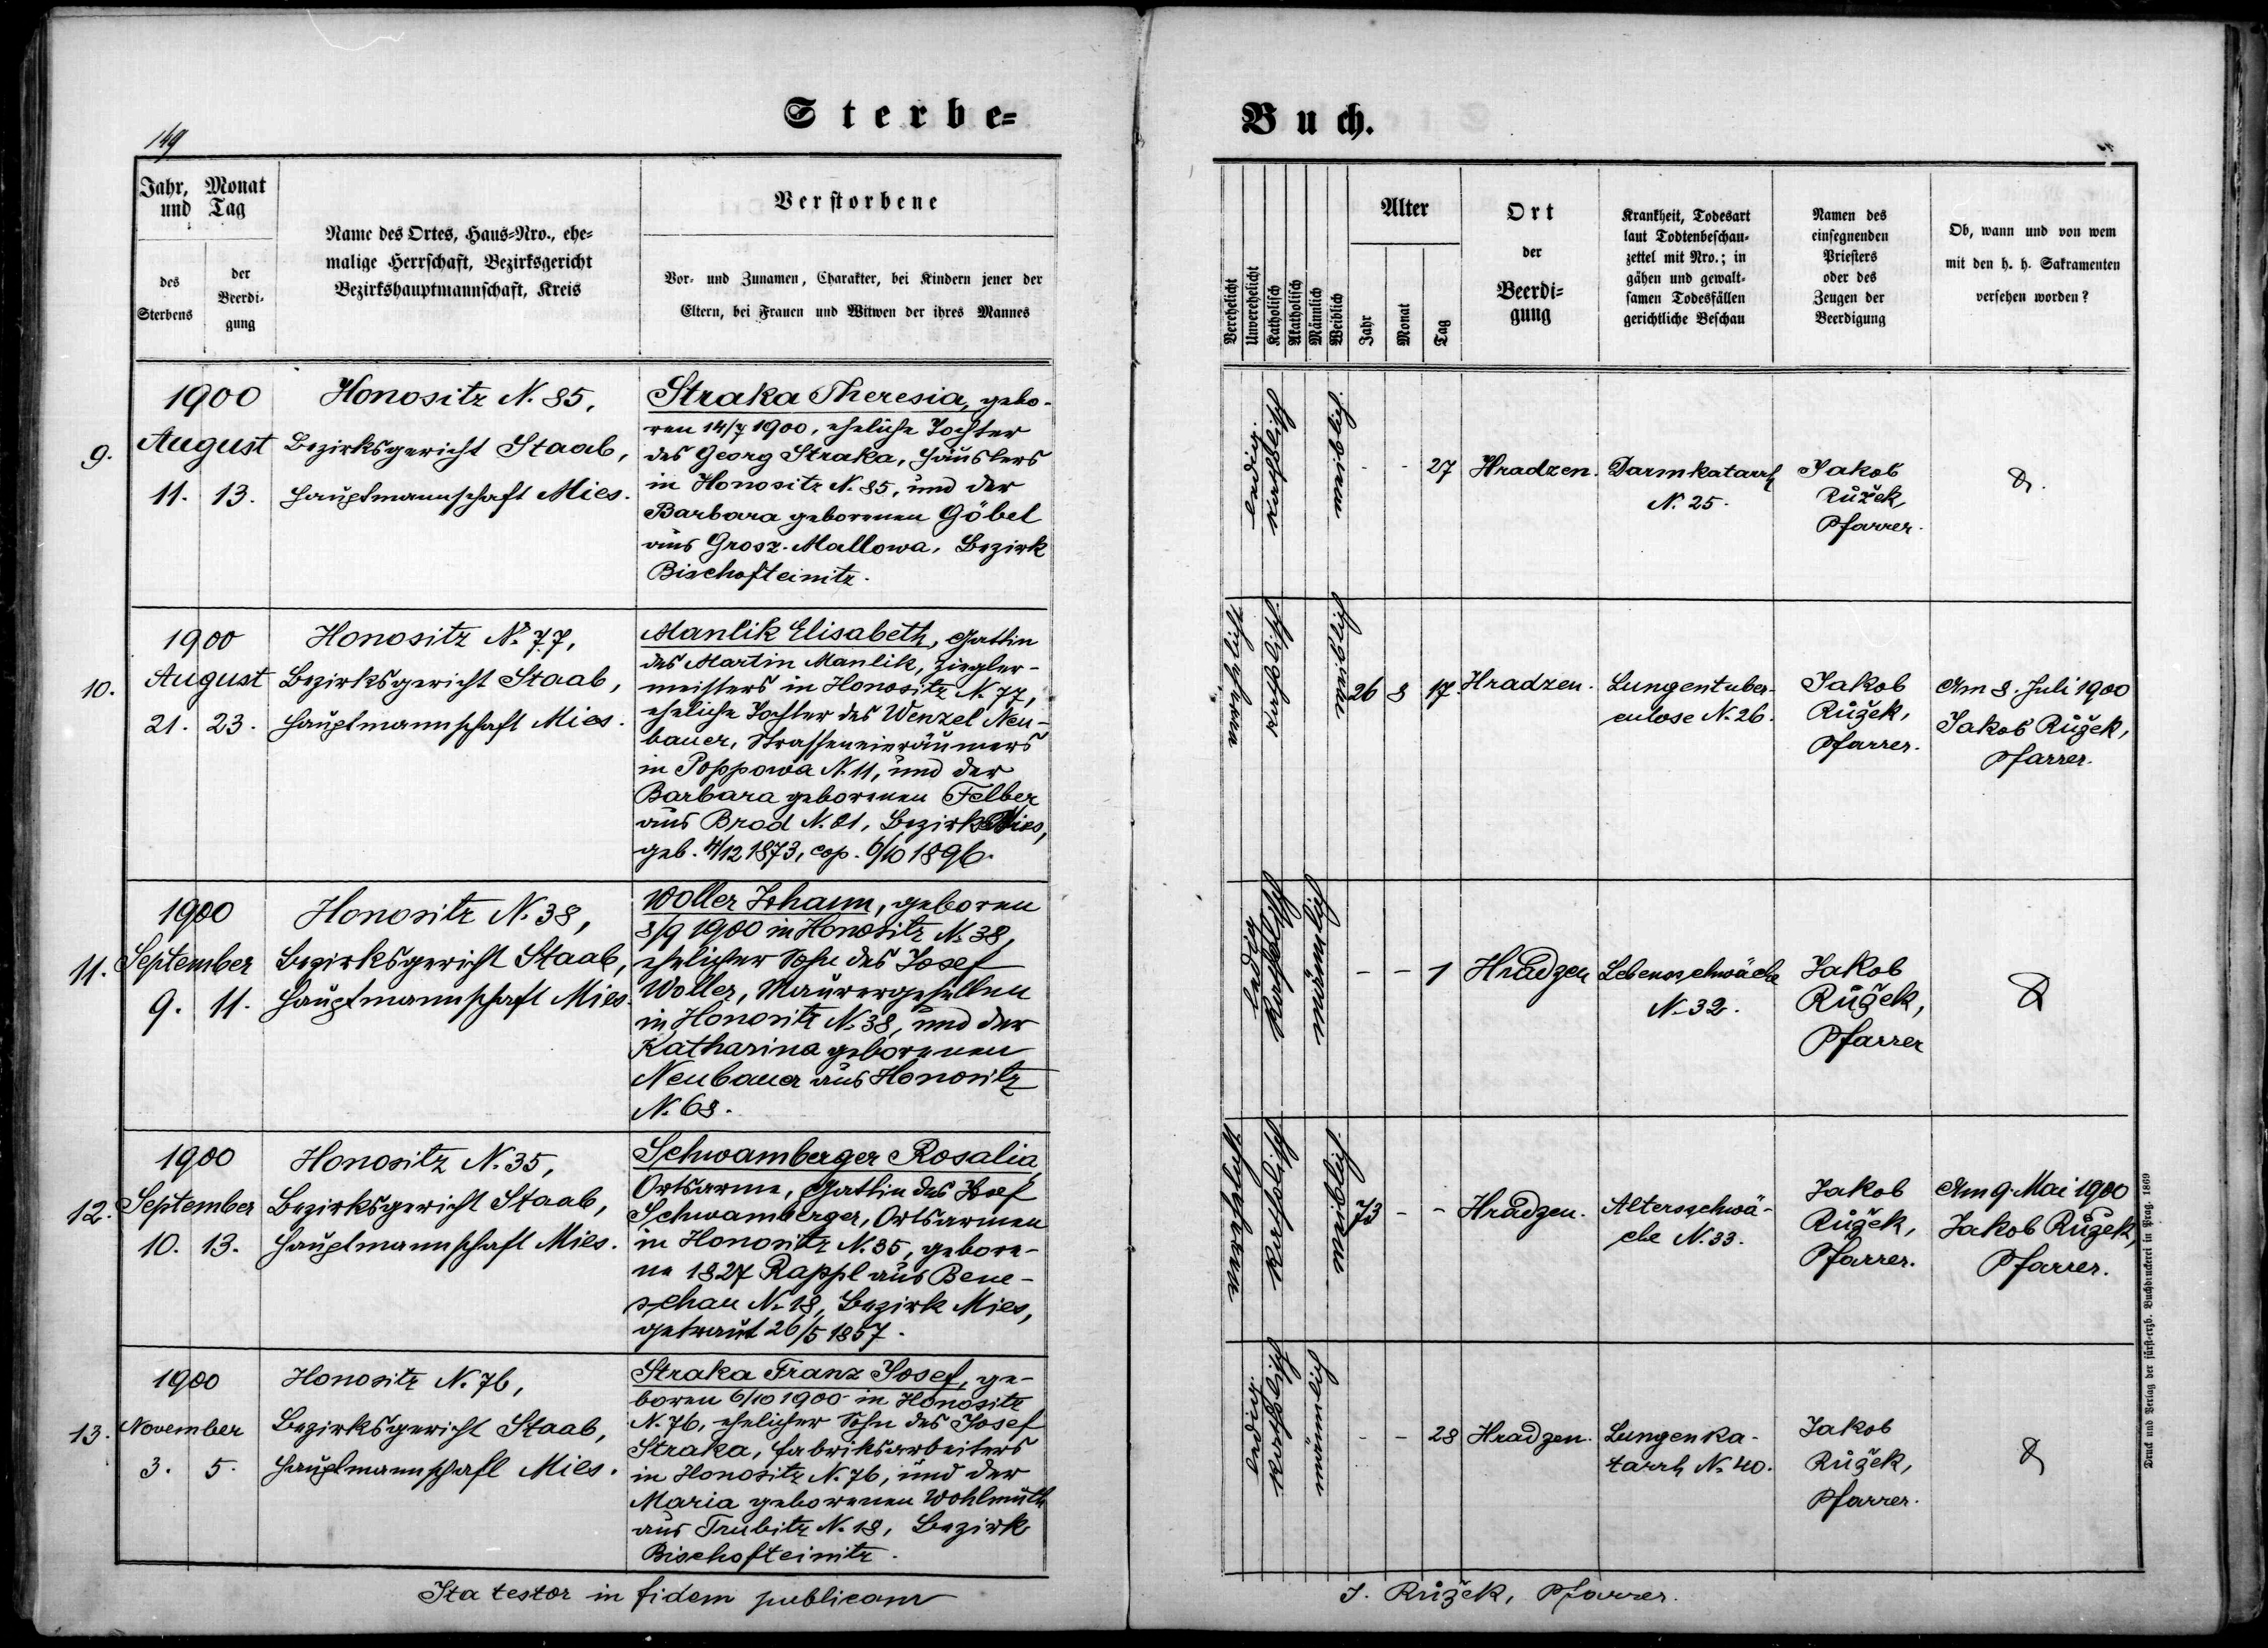 149
Sterbe=
Buch.
Jahr, Monat
und Tag
des
Sterbens
der
Beerdi-
gung
Name des Ortes, Haus=Nro., ehe=
malige Herrschaft, Bezirksgericht
Bezirkshauptmannschaft, Kreis
Verstorbene
Vor- und Zunamen, Charakter, bei Kindern jener der
Eltern, bei Frauen und Witwen der ihres Mannes
Verehelicht
Unverehelicht
Katholisch
Akatholisch
Männlich
Weiblich
Alter
Jahr
Monat
Tag
Ort
der
Beerdi=
gung
Krankheit, Todesart
laut Todtenbeschau-
zettel mit Nro.; in
gähen und gewalt-
samen Todesfällen
gerichtliche Beschau
Namen des
einsegnenden
Priesters
oder des
Zeugen der
Beerdigung
Ob, wann und von wem
mit den h. h. Sakramenten
versehen worden?
9.
1900
August
11. 13.
Honositz N. 85,
Bezirksgericht Staab,
Hauptmannschaft Mies.
Straka Theresia, gebo-
ren 14/7 1900, eheliche Tochter
des Georg Straka, Häuslers
in Honositz N. 85, und der
Barbara geborenen Göbel
aus Grosz-Mallowa, Bezirk
Bischofteinitz.
ledig.
katholisch
weiblich.
- - 27
Hradzen.
Darmkatarrh
N. 25.
Jakob
Růžek,
Pfarrer.
10.
1900
August
21. 23.
Honositz N. 77,
Bezirksgericht Staab,
Hauptmannschaft Mies.
Manlik Elisabeth, Gattin
des Martin Manlik, Ziegler-
meisters in Honositz N. 77,
eheliche Tochter des Wenzel Neu-
bauer, Strasseneinräumers
in Poppowa N. 11, und der
Barbara geborenen Felber
aus Brod N. 21, Bezirk Mies,
geb. 4/12 1873, cop. 6/10 1896.
verehelicht
katholisch
weiblich
26 8 17
Hradzen.
Lungentuber-
culose N. 26.
Jakob
Růžek,
Pfarrer.
Am 8. Juli 1900
Jakob Růžek,
Pfarrer.
11.
1900
September
9. 11.
Honositz N. 38,
Bezirksgericht Staab,
Hauptmannschaft Mies.
Woller Johann, geboren
8/9 1900 in Honositz N. 38,
ehelicher Sohn des Josef
Woller, Maurergesellen
in Honositz N. 38, und der
Katharina geborenen
Neubauer aus Honositz
N. 68.
ledig
katholisch
männlich
- - 1
Hradzen
Lebensschwäche
N. 32.
Jakob
Růžek,
Pfarrer
12.
1900
September
10. 13.
Honositz N. 35,
Bezirksgericht Staab,
Hauptmannschaft Mies.
Schwamberger Rosalia,
Ortsarme, Gattin des Josef
Schwamberger, Ortsarmen
in Honositz N. 35, gebore-
ne 1827 Rappl aus Bene-
schau N. 18, Bezirk Mies,
getraut 26/5 1857.
verehelicht
katholisch
weiblich
73 - -
Hradzen.
Altersschwä-
che N. 33.
Jakob
Růžek,
Pfarrer.
Am 9. Mai 1900
Jakob Růžek,
Pfarrer.
13.
1900
November
3. 5.
Honositz N. 76,
Bezirksgericht Staab,
Hauptmannschaft Mies.
Straka Franz Josef, ge-
boren 6/10 1900 in Honositz
N. 76, ehelicher Sohn des Josef
Straka, Fabriksarbeiters
in Honositz N. 76, und der
Maria geborenen Wohlmuth
aus Trubitz N. 18, Bezirk
Bischofteinitz.
ledig.
katholisch
männlich
- - 28
Hradzen.
Lungenka-
tarrh N. 40.
Jakob
Růžek,
Pfarrer.
Ita testor in fidem publicam
J. Růžek, Pfarrer.
Druck und Verlag der fürst-erzb. Buchdruckerei in Prag. 1869